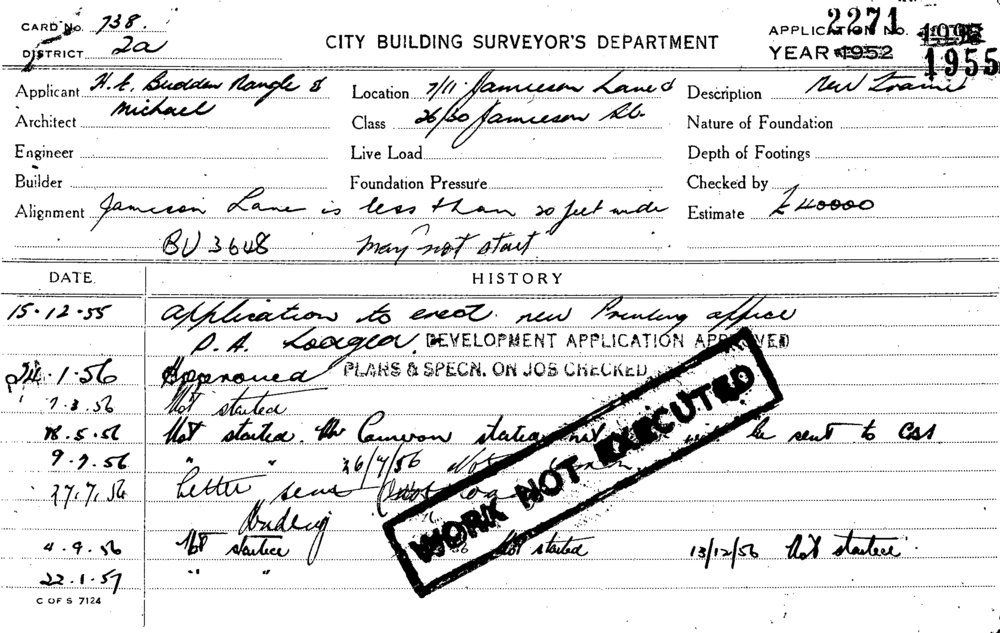 CARD No. 738.
DISTRICT 2a
CITY BUILDING SURVEYOR'S DEPARTMENT
2271
APPLICATION No.
YEAR 1952 1955
Applicant H. E. Budden Nangle &
Michael
Location 7/11 Jamieson Lane &
Description New
Architect
Class 26/30 Jamieson St.
Nature of Foundation
Engineer
Live Load
Depth of Footings
Builder
Foundation Pressure
Checked by
Alignment Jamieson Lane is less than 20 feet wide
Estimate £40000
BU 3648 may not start
DATE
HISTORY
15.12.55 Application to erect new Printing office
D.A. Lodged. DEVELOPMENT APPLICATION APPROVED
24.1.56 Approved PLANS & SPECN. ON JOB CHECKED
7.3.56 Not started
18.5.56 Not started. Mr Cameron states be sent to CSA
9.7.56 " " 26/7/56
27.7.56 Letter sent
4.9.56 Not started Not started 13/12/56 Not started
22.1.57 " "
WORK NOT EXECUTED
C OF S 7124